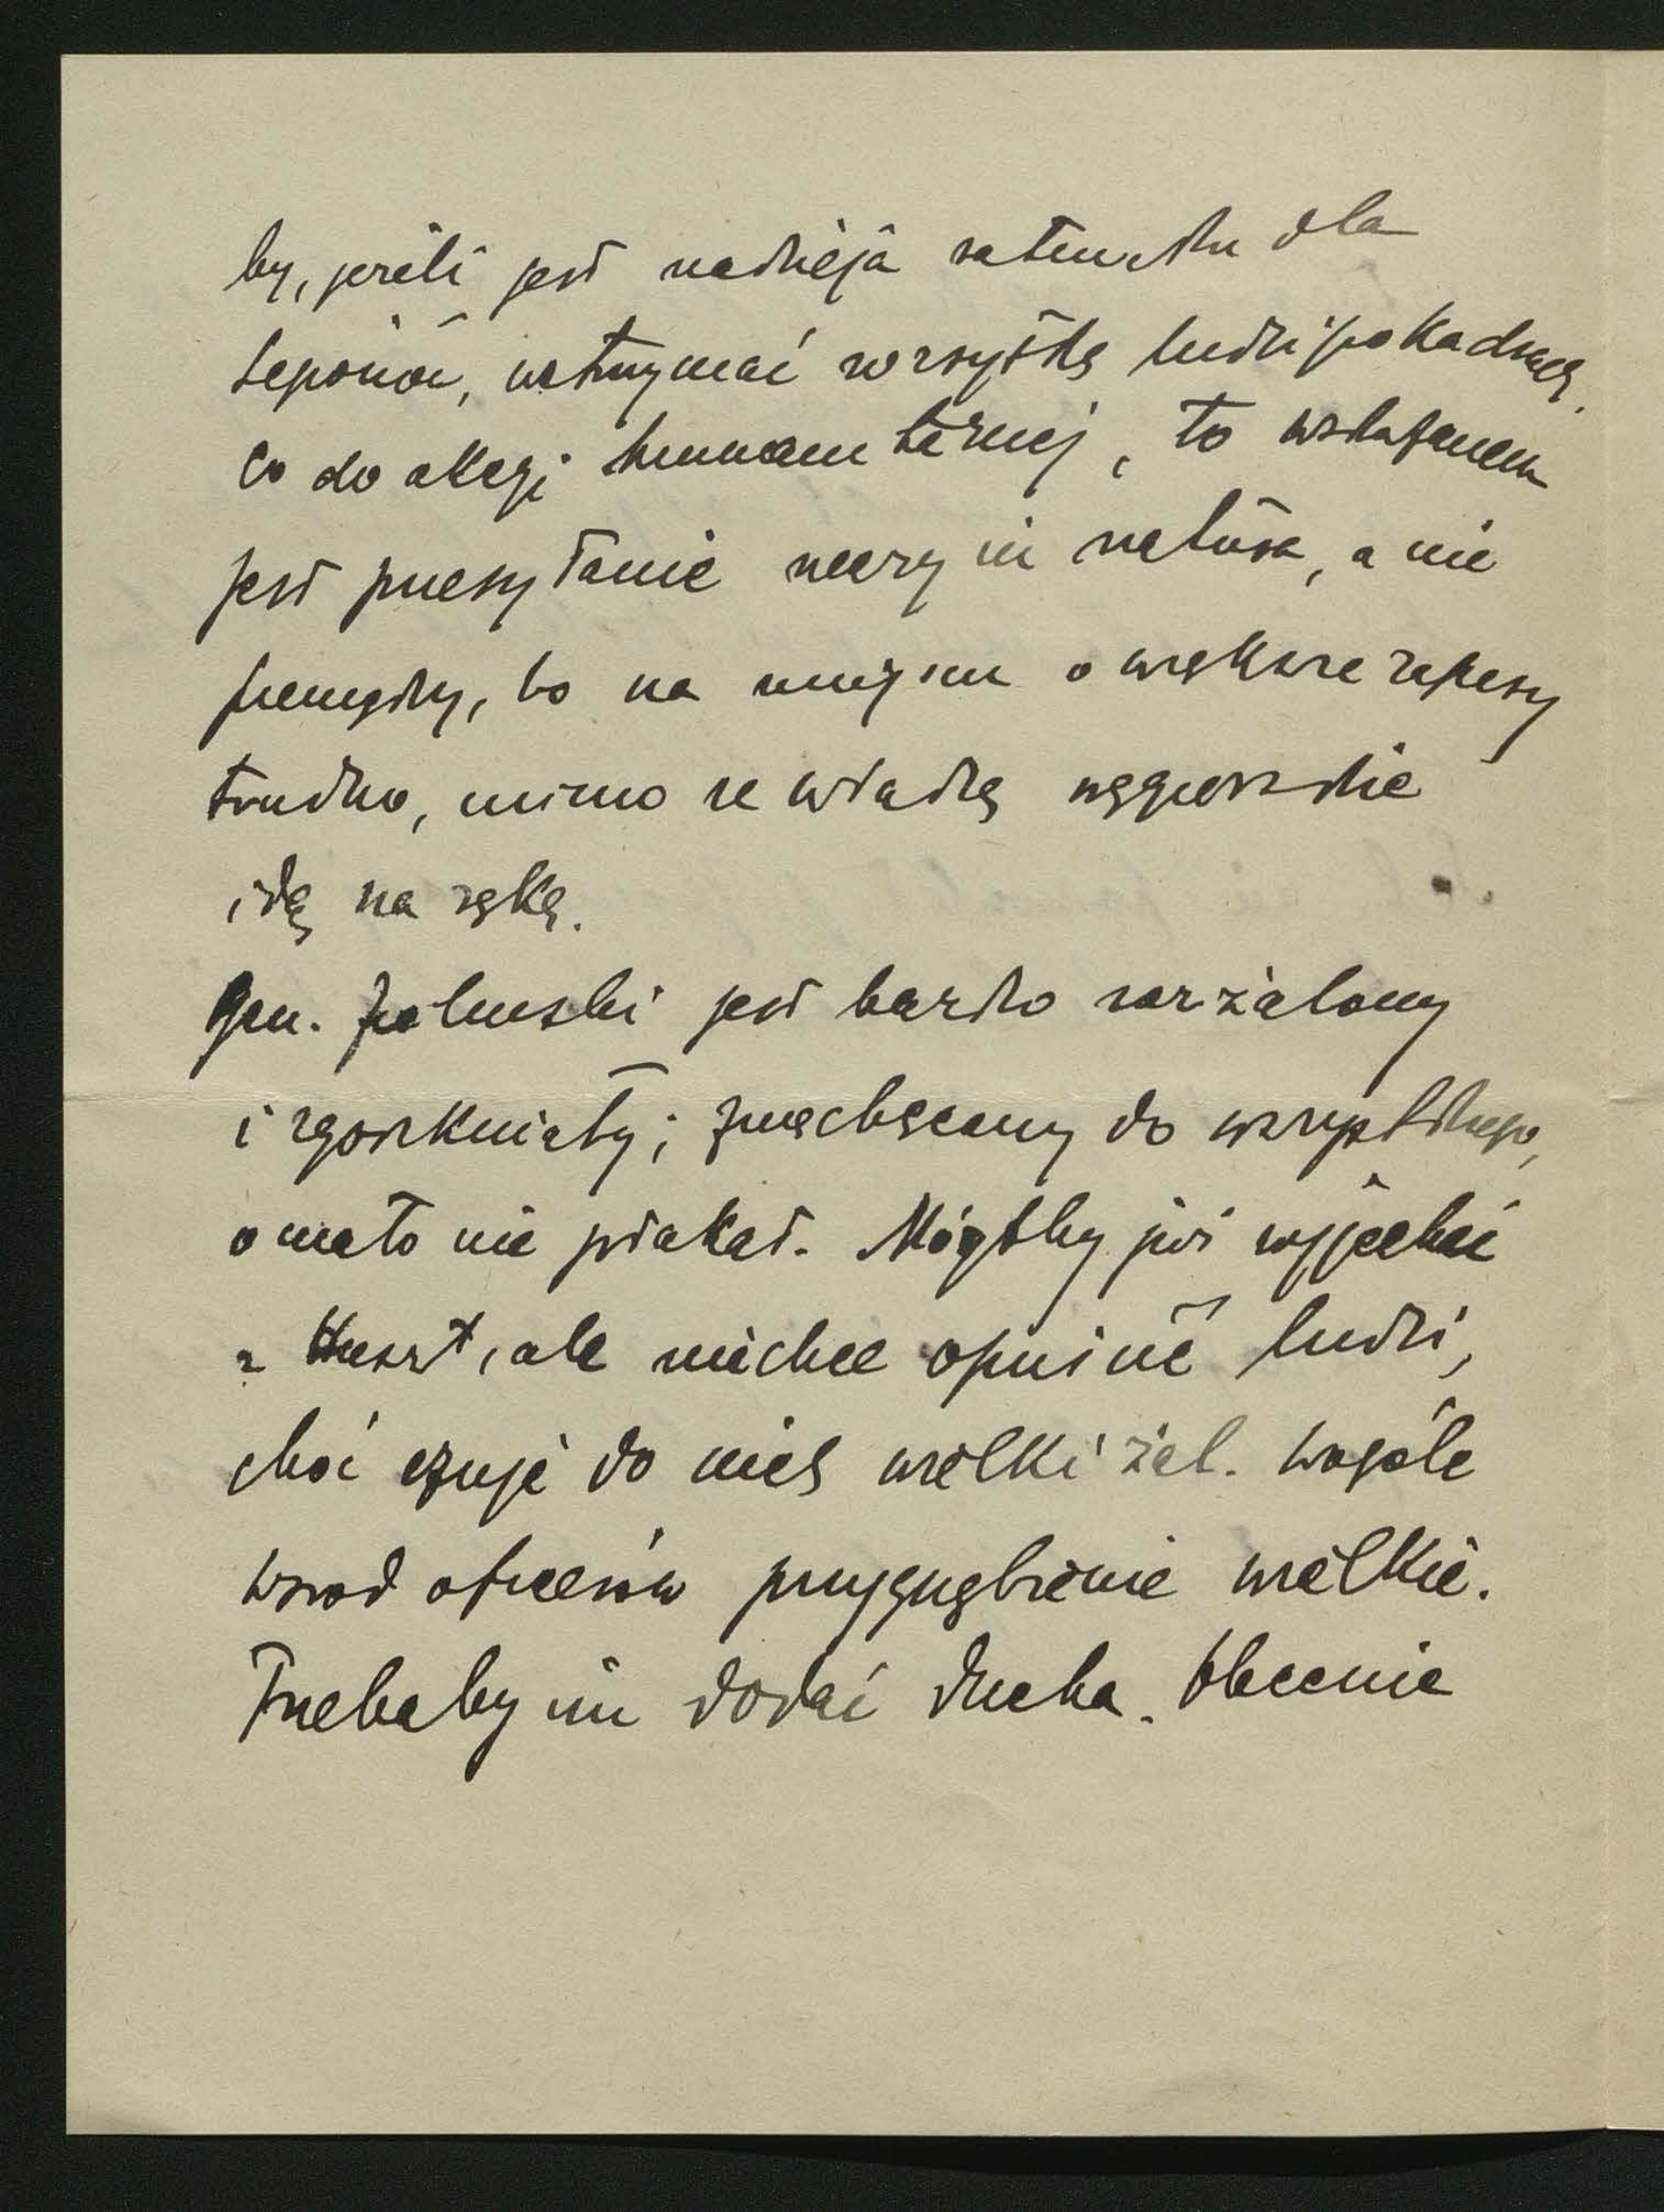 by, jeżeli jest nadzieja ratunku dla
legionów, wstrzymać wszystką ludzi po kadrach.
Co do akcyi humanitarnej, to wskazanem
jest przesyłanie rzeczy in natura, a nie
pieniędzy, bo na miejscu o większe zapasy
trudno, mimo że władze węgierskie
idą na rękę.
Gen. Zieliński jest bardzo rozżalony
i zgorzkniały; zniechęcony do wszystkiego,
o mało nie płakał. Mógłby już wyjechać
z Huszt, ale niechce opuścić ludzi,
choć czuje do nich wielki żal. Wogóle
wśród oficerów przygnębienie wielkie.
Trzebaby im dodać ducha. Obecnie